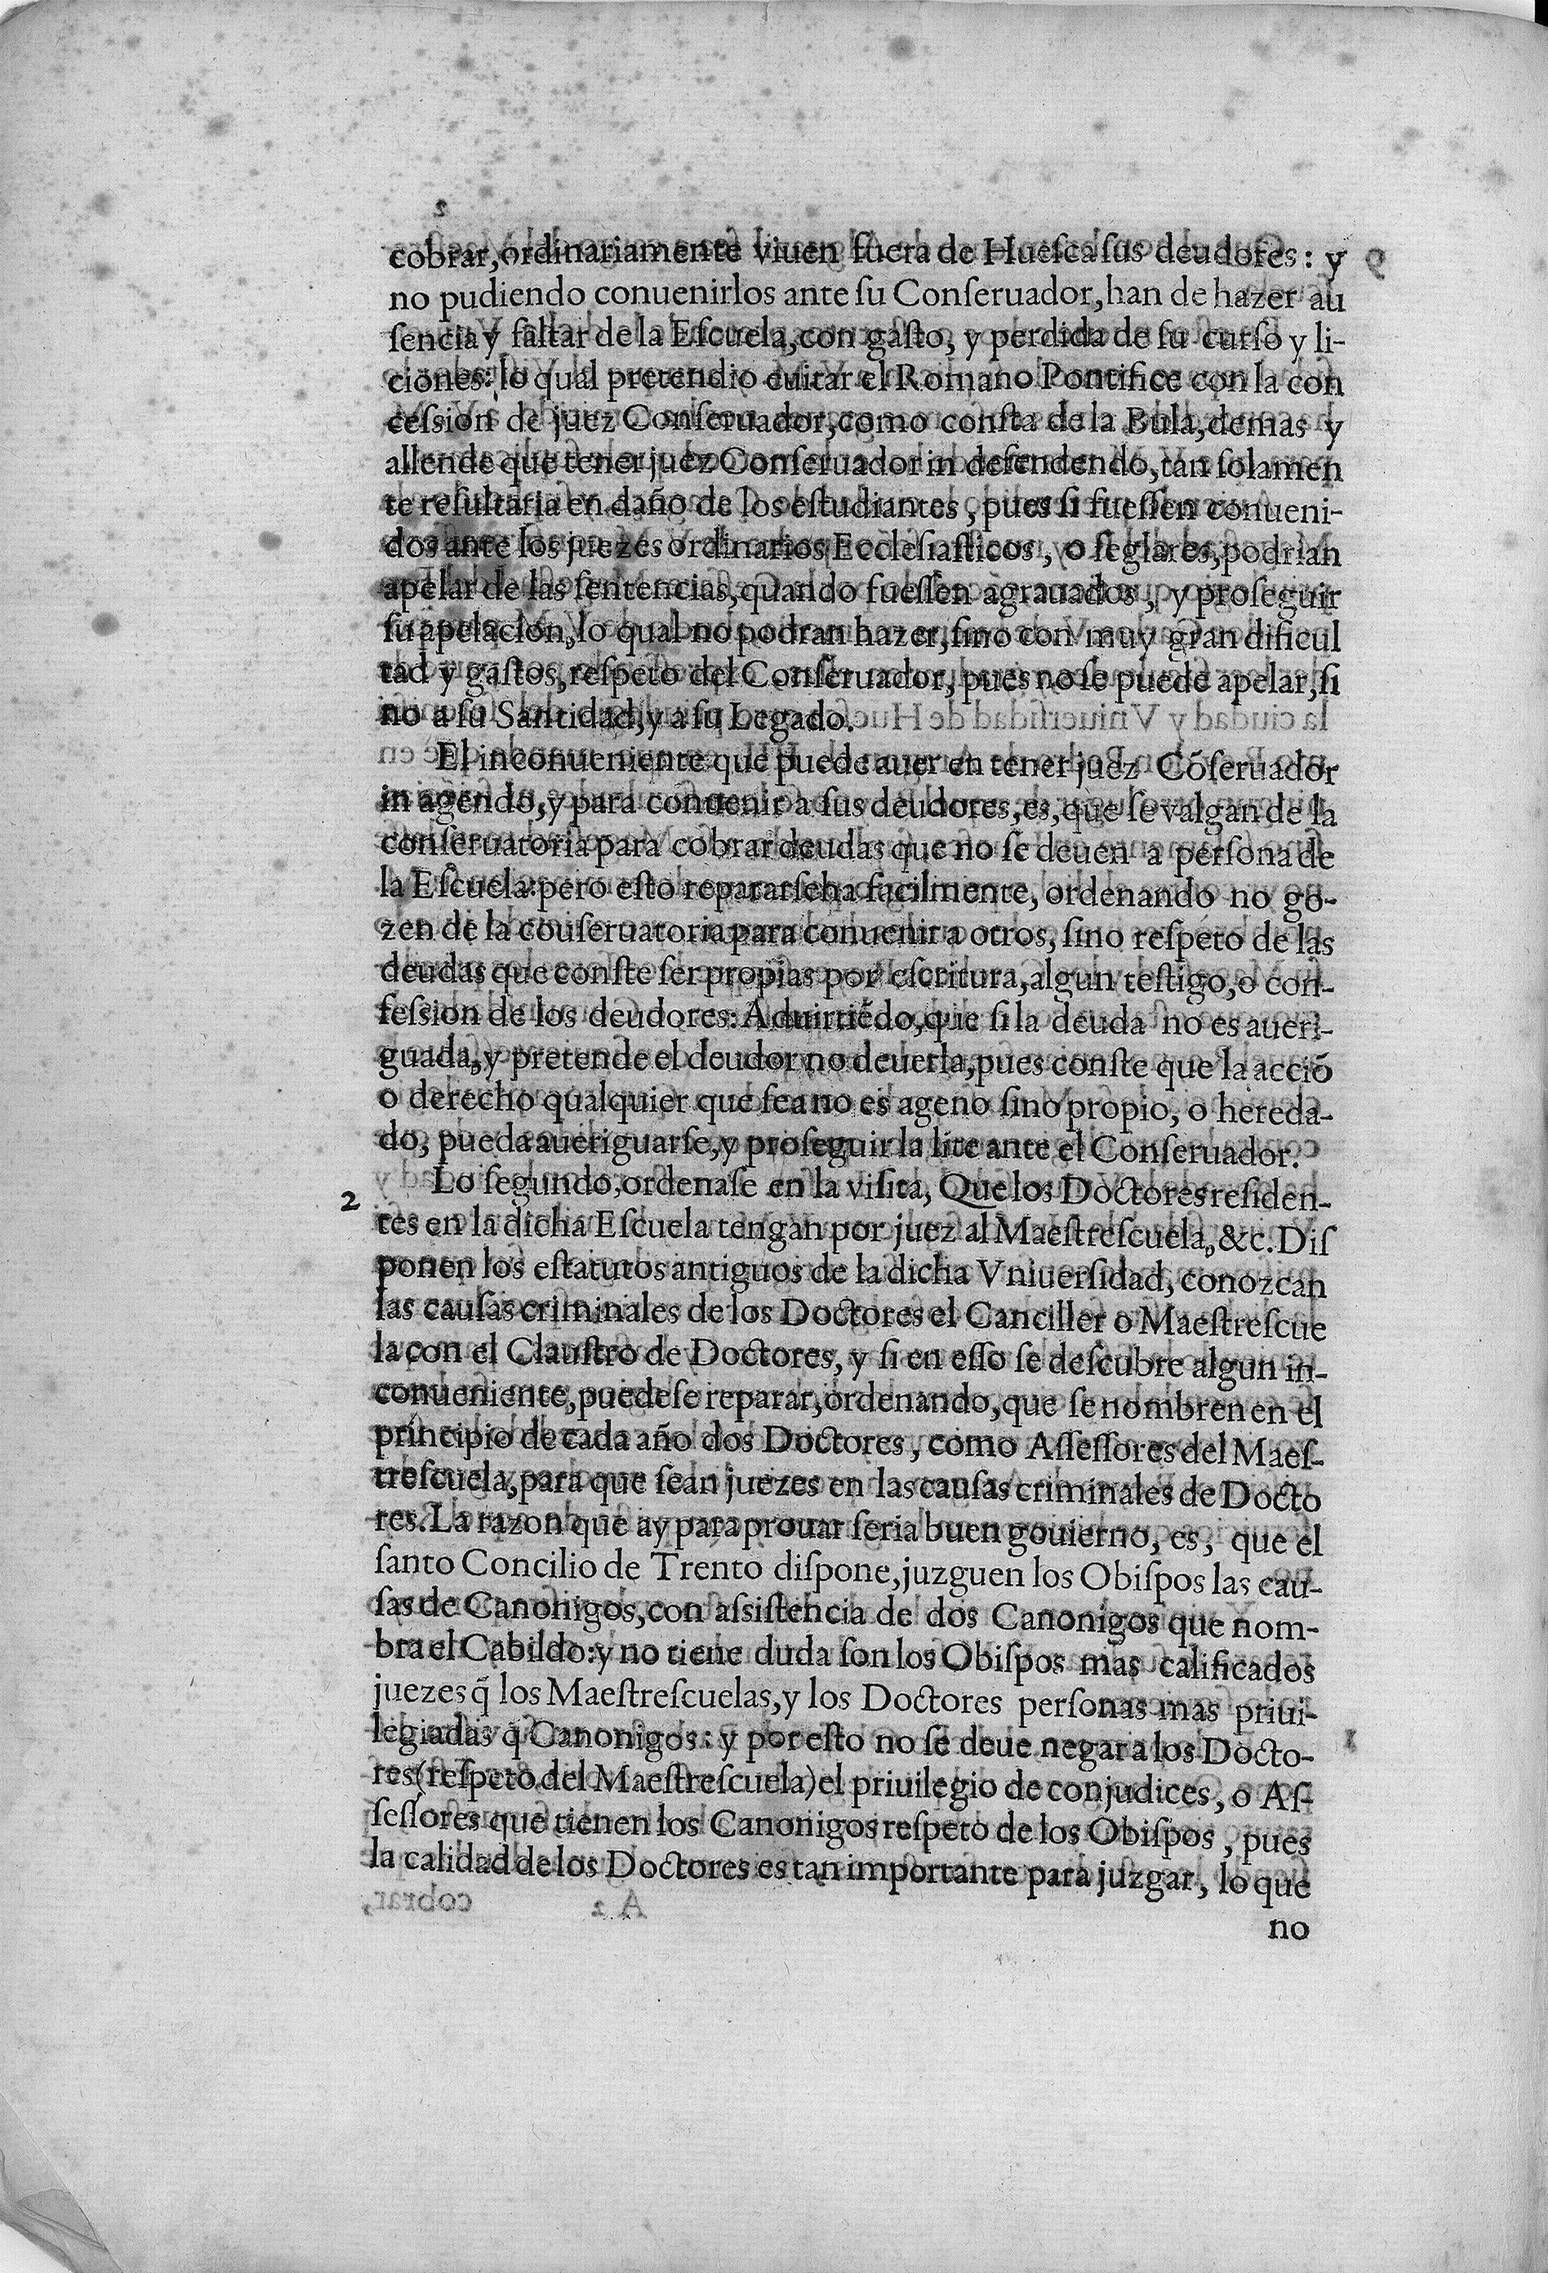 cobrar,ordinariamente viuen fuera de Hueſca ſus deudores: y
no pudiendo conuenirlos ante ſu Conſeruador,han de hazer au
ſencia y faltar de la Eſcuela,con gaſto, y perdida de ſu curſo y li-
ciones: lo qual pretendio euitar el Romano Pontifice con la con
ceſsion de juez Conſeruador,como conſta de la Bula,demas y
allende que tener juez Conſeruador in defendendo,tan ſolamen
te reſultaria en daño de los eſtudiantes, pues ſi fueſſen conueni-
dos ante los juezes ordinarios Eccleſiaſticos, o ſeglares,podrian
apelar de las ſentencias,quando fueſſen agrauados, y proſeguir
ſu apelacion,lo qual no podran hazer,ſino con muy gran dificul
tad y gaſtos,reſpeto del Conſeruador, pues no ſe puede apelar,ſi
no a ſu Santidad,y a ſu Legado.
El inconueniente que puede auer en tener juez Cõſeruador
in agendo,y para conuenir a ſus deudores,es,que ſe valgan de la
conſeruatoria para cobrar deudas que no ſe deuen a perſona de
la Eſcuela:pero eſto repararſeha facilmente, ordenando no go-
zen de la couſeruatoria para conuenir a otros, ſino reſpeto de las
deudas que conſte ſer propias por eſcritura,algun teſtigo,o con-
feſsion de los deudores: Aduirtiẽdo,que ſi la deuda no es aueri-
guada,y pretende el deudor no deuerla,pues conſte que la acciõ
o derecho qualquier que ſea no es ageno ſino propio, o hereda-
do, pueda aueriguarſe,y proſeguir la lite ante el Conſeruador.
2 Lo ſegundo,ordenaſe en la viſita, Que los Doctores reſiden-
tes en la dicha Eſcuela tengan por juez al Maeſtreſcuela,&c. Diſ
ponen los eſtatutos antiguos de la dicha Vniuerſidad, conozcan
las cauſas criminales de los Doctores el Canciller o Maeſtreſcue
la con el Clauſtro de Doctores, y ſi en eſſo ſe deſcubre algun in-
conueniente,puedeſe reparar,ordenando,que ſe nombren en el
principio de cada año dos Doctores, como Aſſeſſores del Maeſ-
treſcuela,para que ſean juezes en las cauſas criminales de Docto
res. La razon que ay para prouar ſeria buen gouierno, es, que el
ſanto Concilio de Trento diſpone,juzguen los Obiſpos las cau-
ſas de Canonigos,con aſsiſtencia de dos Canonigos que nom-
bra el Cabildo:y no tiene duda ſon los Obiſpos mas calificados
juezes q̃ los Maeſtreſcuelas,y los Doctores perſonas mas priui-
legiadas q̃ Canonigos: y por eſto no ſe deue negar a los Docto-
res(reſpeto del Maeſtreſcuela)el priuilegio de conjudices, o Aſ-
ſeſſores que tienen los Canonigos reſpeto de los Obiſpos, pues
la calidad de los Doctores es tan importante para juzgar, lo que
no